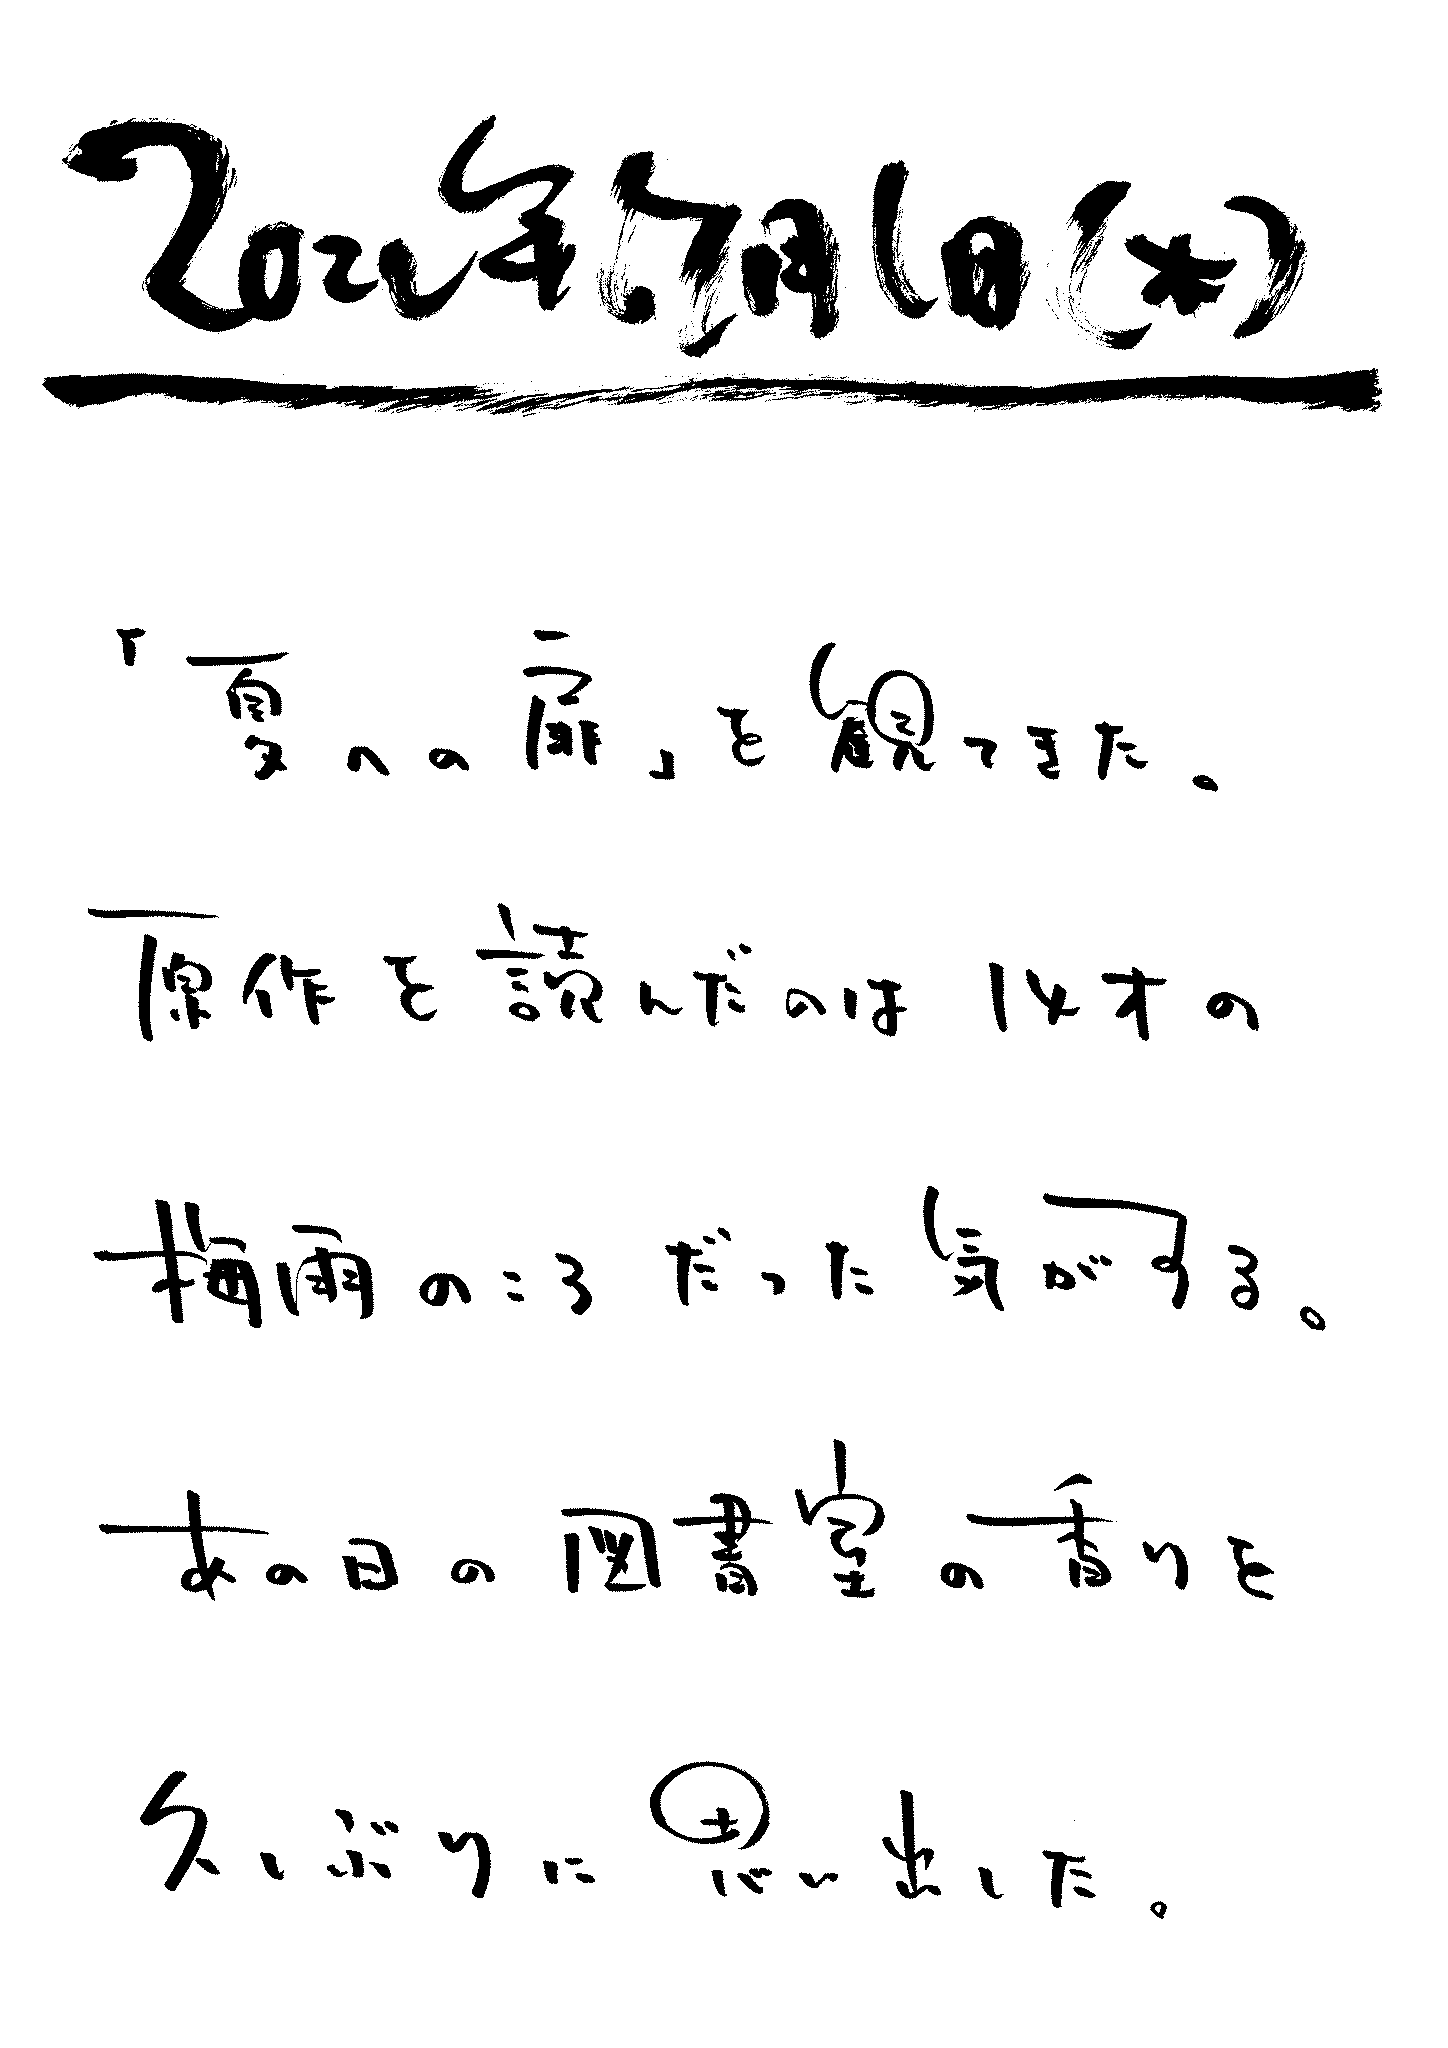 2021年7月1日(木)
「夏への扉」を観てきた。
原作を読んだのは 14才の
梅雨のころ だった気がする。
あの日の図書室の香りを
久しぶりに思い出した。